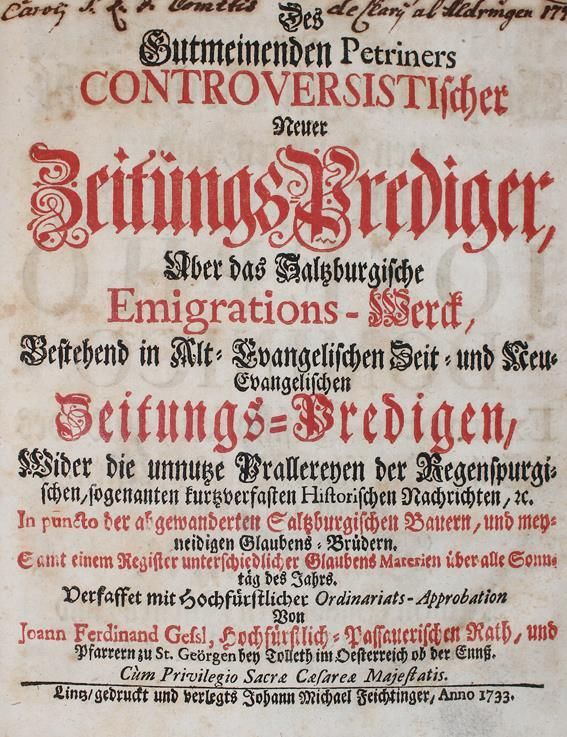 Carolj S. R. J. Comitis de Clarÿ al Aldringen 177
Des
Gutmeinenden Petriners
CONTROVERSISTIscher
Neuer
Zeitüngs Prediger,
Uber das Saltzburgische
Emigrations - Werck,
Bestehend in Alt- Evangelischen Zeit- und Neu-
Evangelischen
Zeitungs-Predigen,
Wider die unnutze Prallereyen der Regenspurgi-
schen/sogenanten kurtzverfasten Historischen Nachrichten, ꝛc.
In pûncto der abgewanderten Saltzburgischen Bauern, und mey-
neidigen Glaubens-Brüdern.
Samt einem Register unterschiedlicher Glaubens Materien über alle Sonn-
täg des Jahrs.
Verfasset mit Hochfürstlicher Ordinariats-Approbation
Von
Joann Ferdinand Gessl, Hochfürstlich-Passauerischen Rath, und
Pfarrern zu St. Geörgen bey Tolleth im Oesterreich ob der Ennß.
Cùm Privilegio Sacræ Cæsareæ Majestatis.
Lintz/gedruckt und verlegts Johann Michael Feichtinger, Anno 1733.